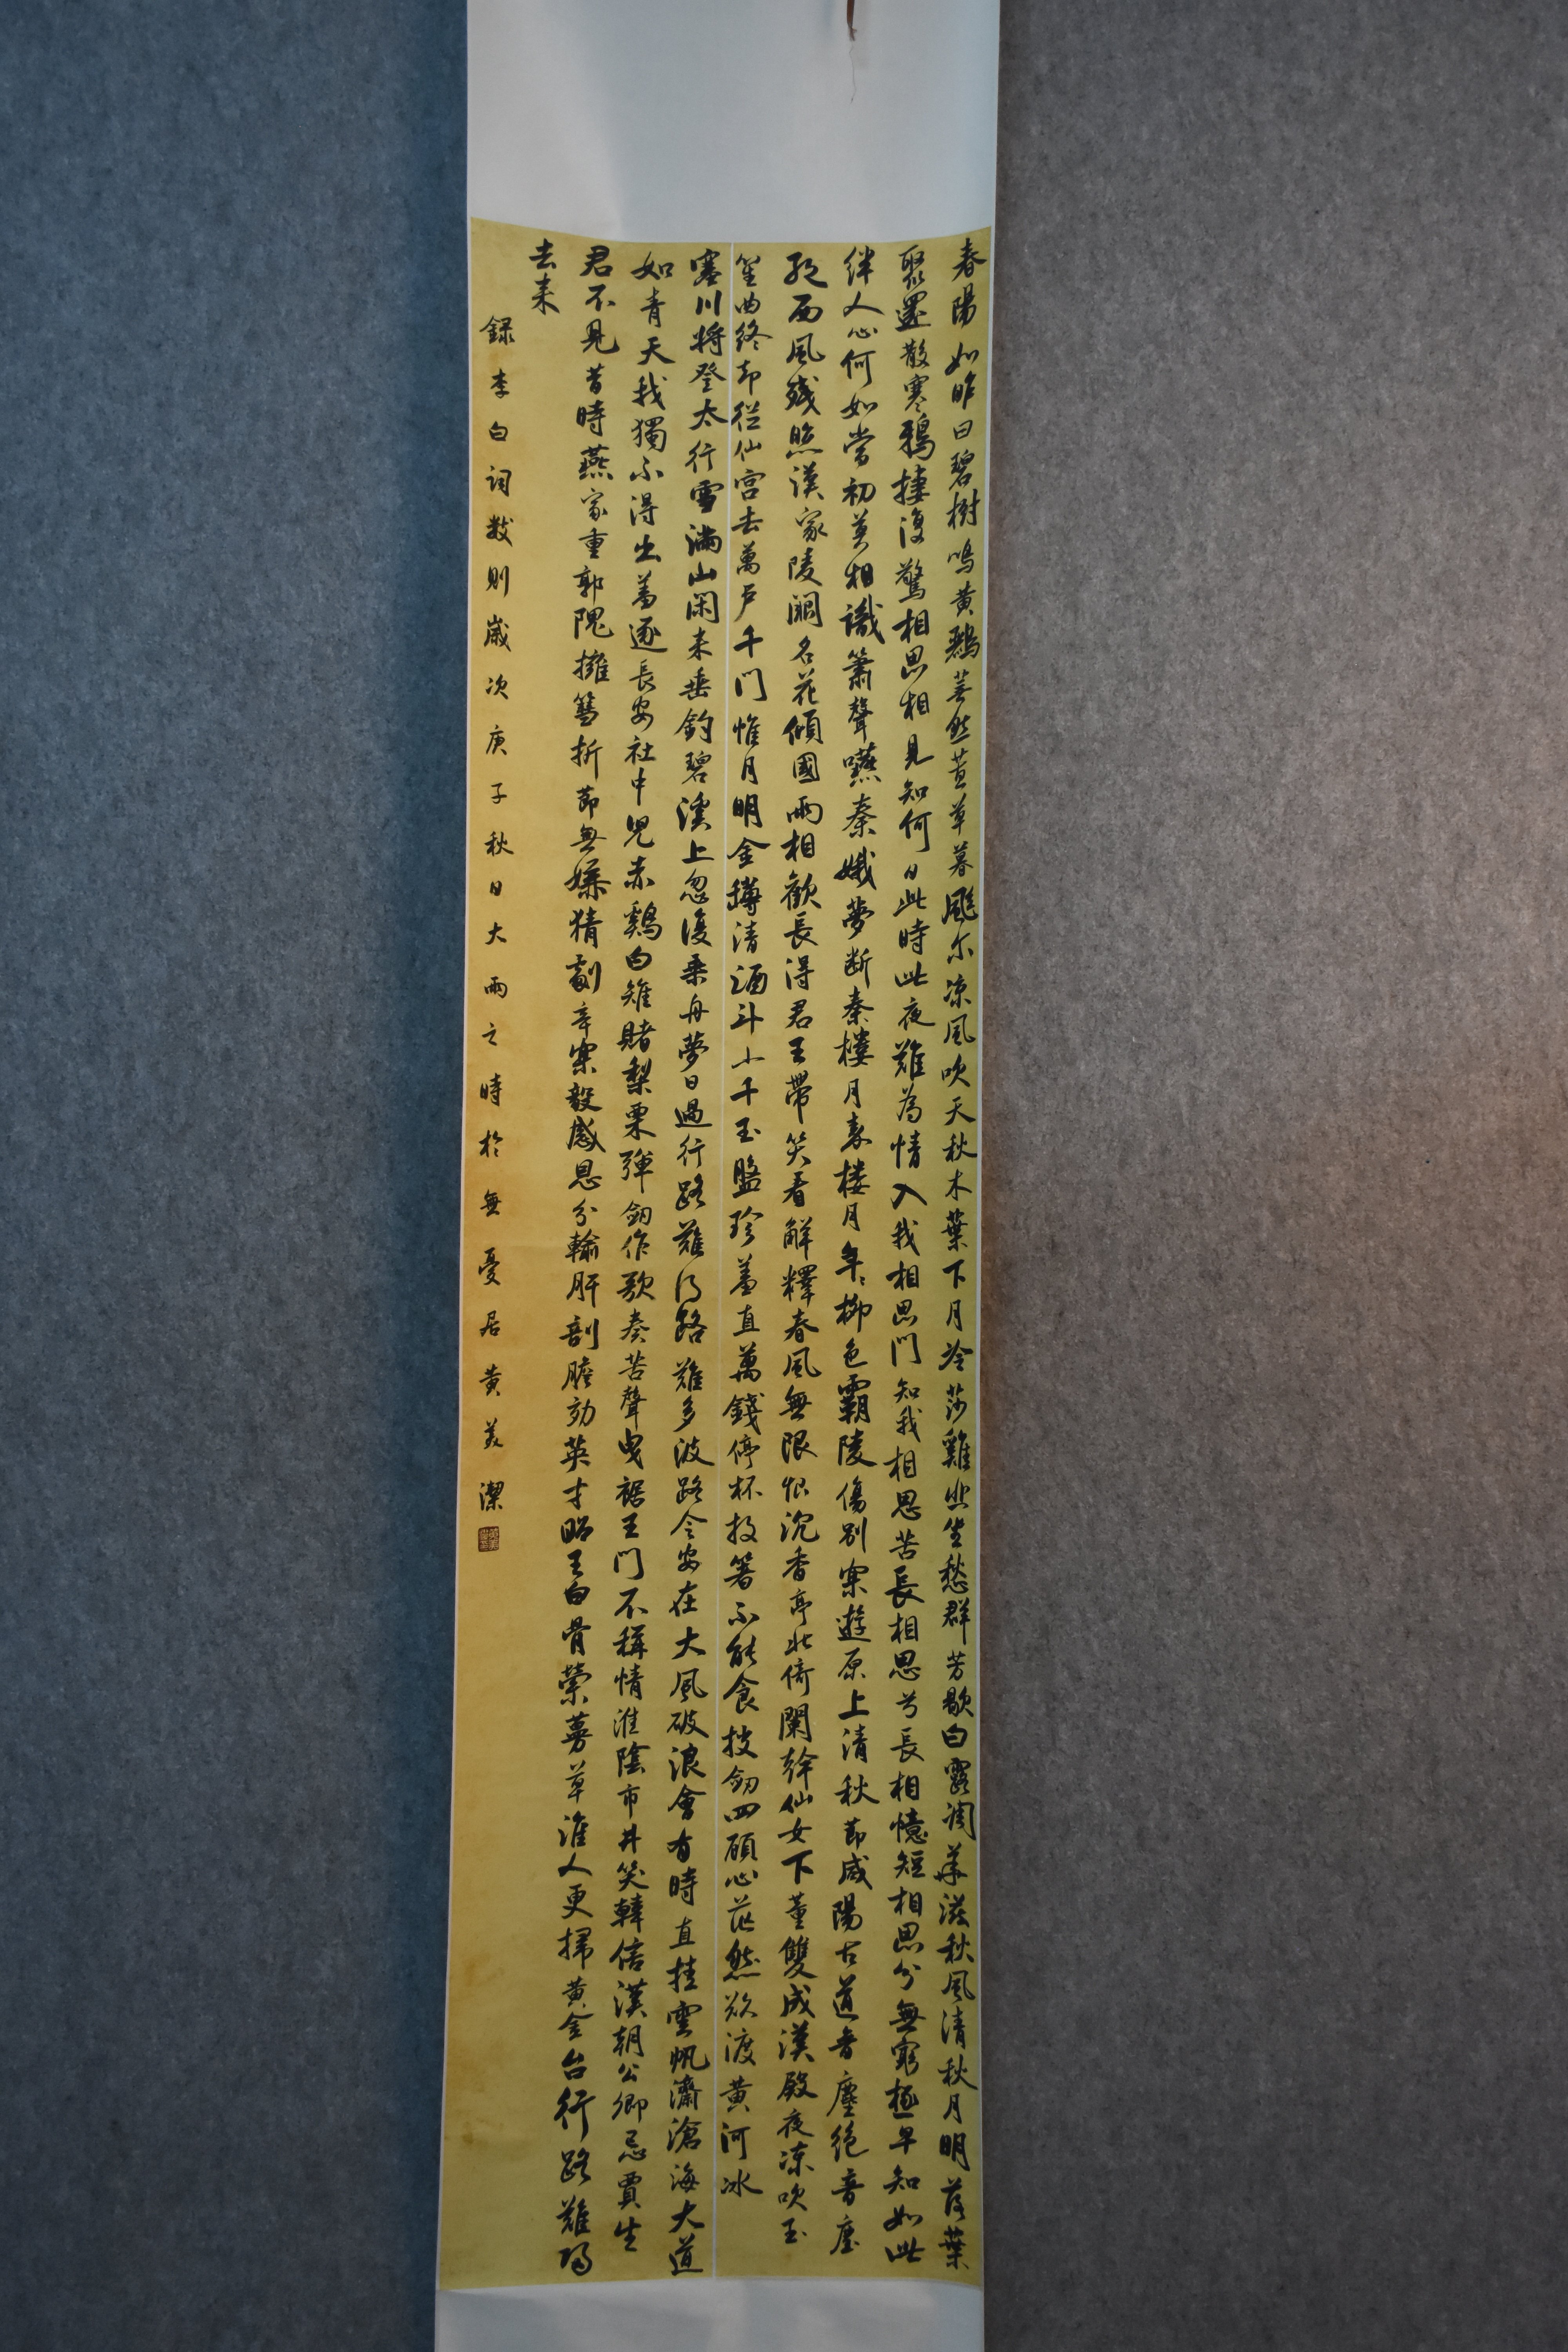 春陽如昨日碧樹鳴黃鸝蕪然蕙草暮颯尔凉風吹天秋木葉下月冷莎雞悲坐愁群芳歇白露凋華滋秋風清秋月明落葉
聚還散寒鴉棲復驚相思相見知何日此時此夜難為情入我相思門知我相思苦長相思兮長相憶短相思兮無窮極早知如此
絆人心何如當初莫相識簫聲嚥秦娥夢斷秦樓月秦樓月年々柳色霸陵傷別樂遊原上清秋節咸陽古道音塵絕音塵
絕西風殘照漢家陵闕名花傾國兩相歡長得君王帶笑看解釋春風無限恨沉香亭北倚闌幹仙女下董雙成漢殿夜凍吹玉
笙曲終却從仙宮去萬戶千門惟月明金罇清酒斗十千玉盤珍羞直萬錢停杯投箸不能食拔劒四顧心茫然欲渡黃河冰
塞川將登太行雪滿山閑来垂釣碧溪上忽復乘舟夢日過行路難行路難多波路今安在大風破浪會有時直挂雲帆濟滄海大道
如青天我獨不得出羞逐長安社中兒赤鷄白雉賭梨栗彈劒作歌奏苦聲曳裾王門不稱情淮陰市井笑韓信漢朝公卿忌賈生
君不見昔時燕家重郭隗擁篲折節無嫌猜劇辛樂毅感恩分輸肝剖膽効英才昭王白骨縈蔓草誰人更掃黃金台行路難歸
去来
録李白詞数則歲次庚子秋日大雨之時於無憂居黄美潔